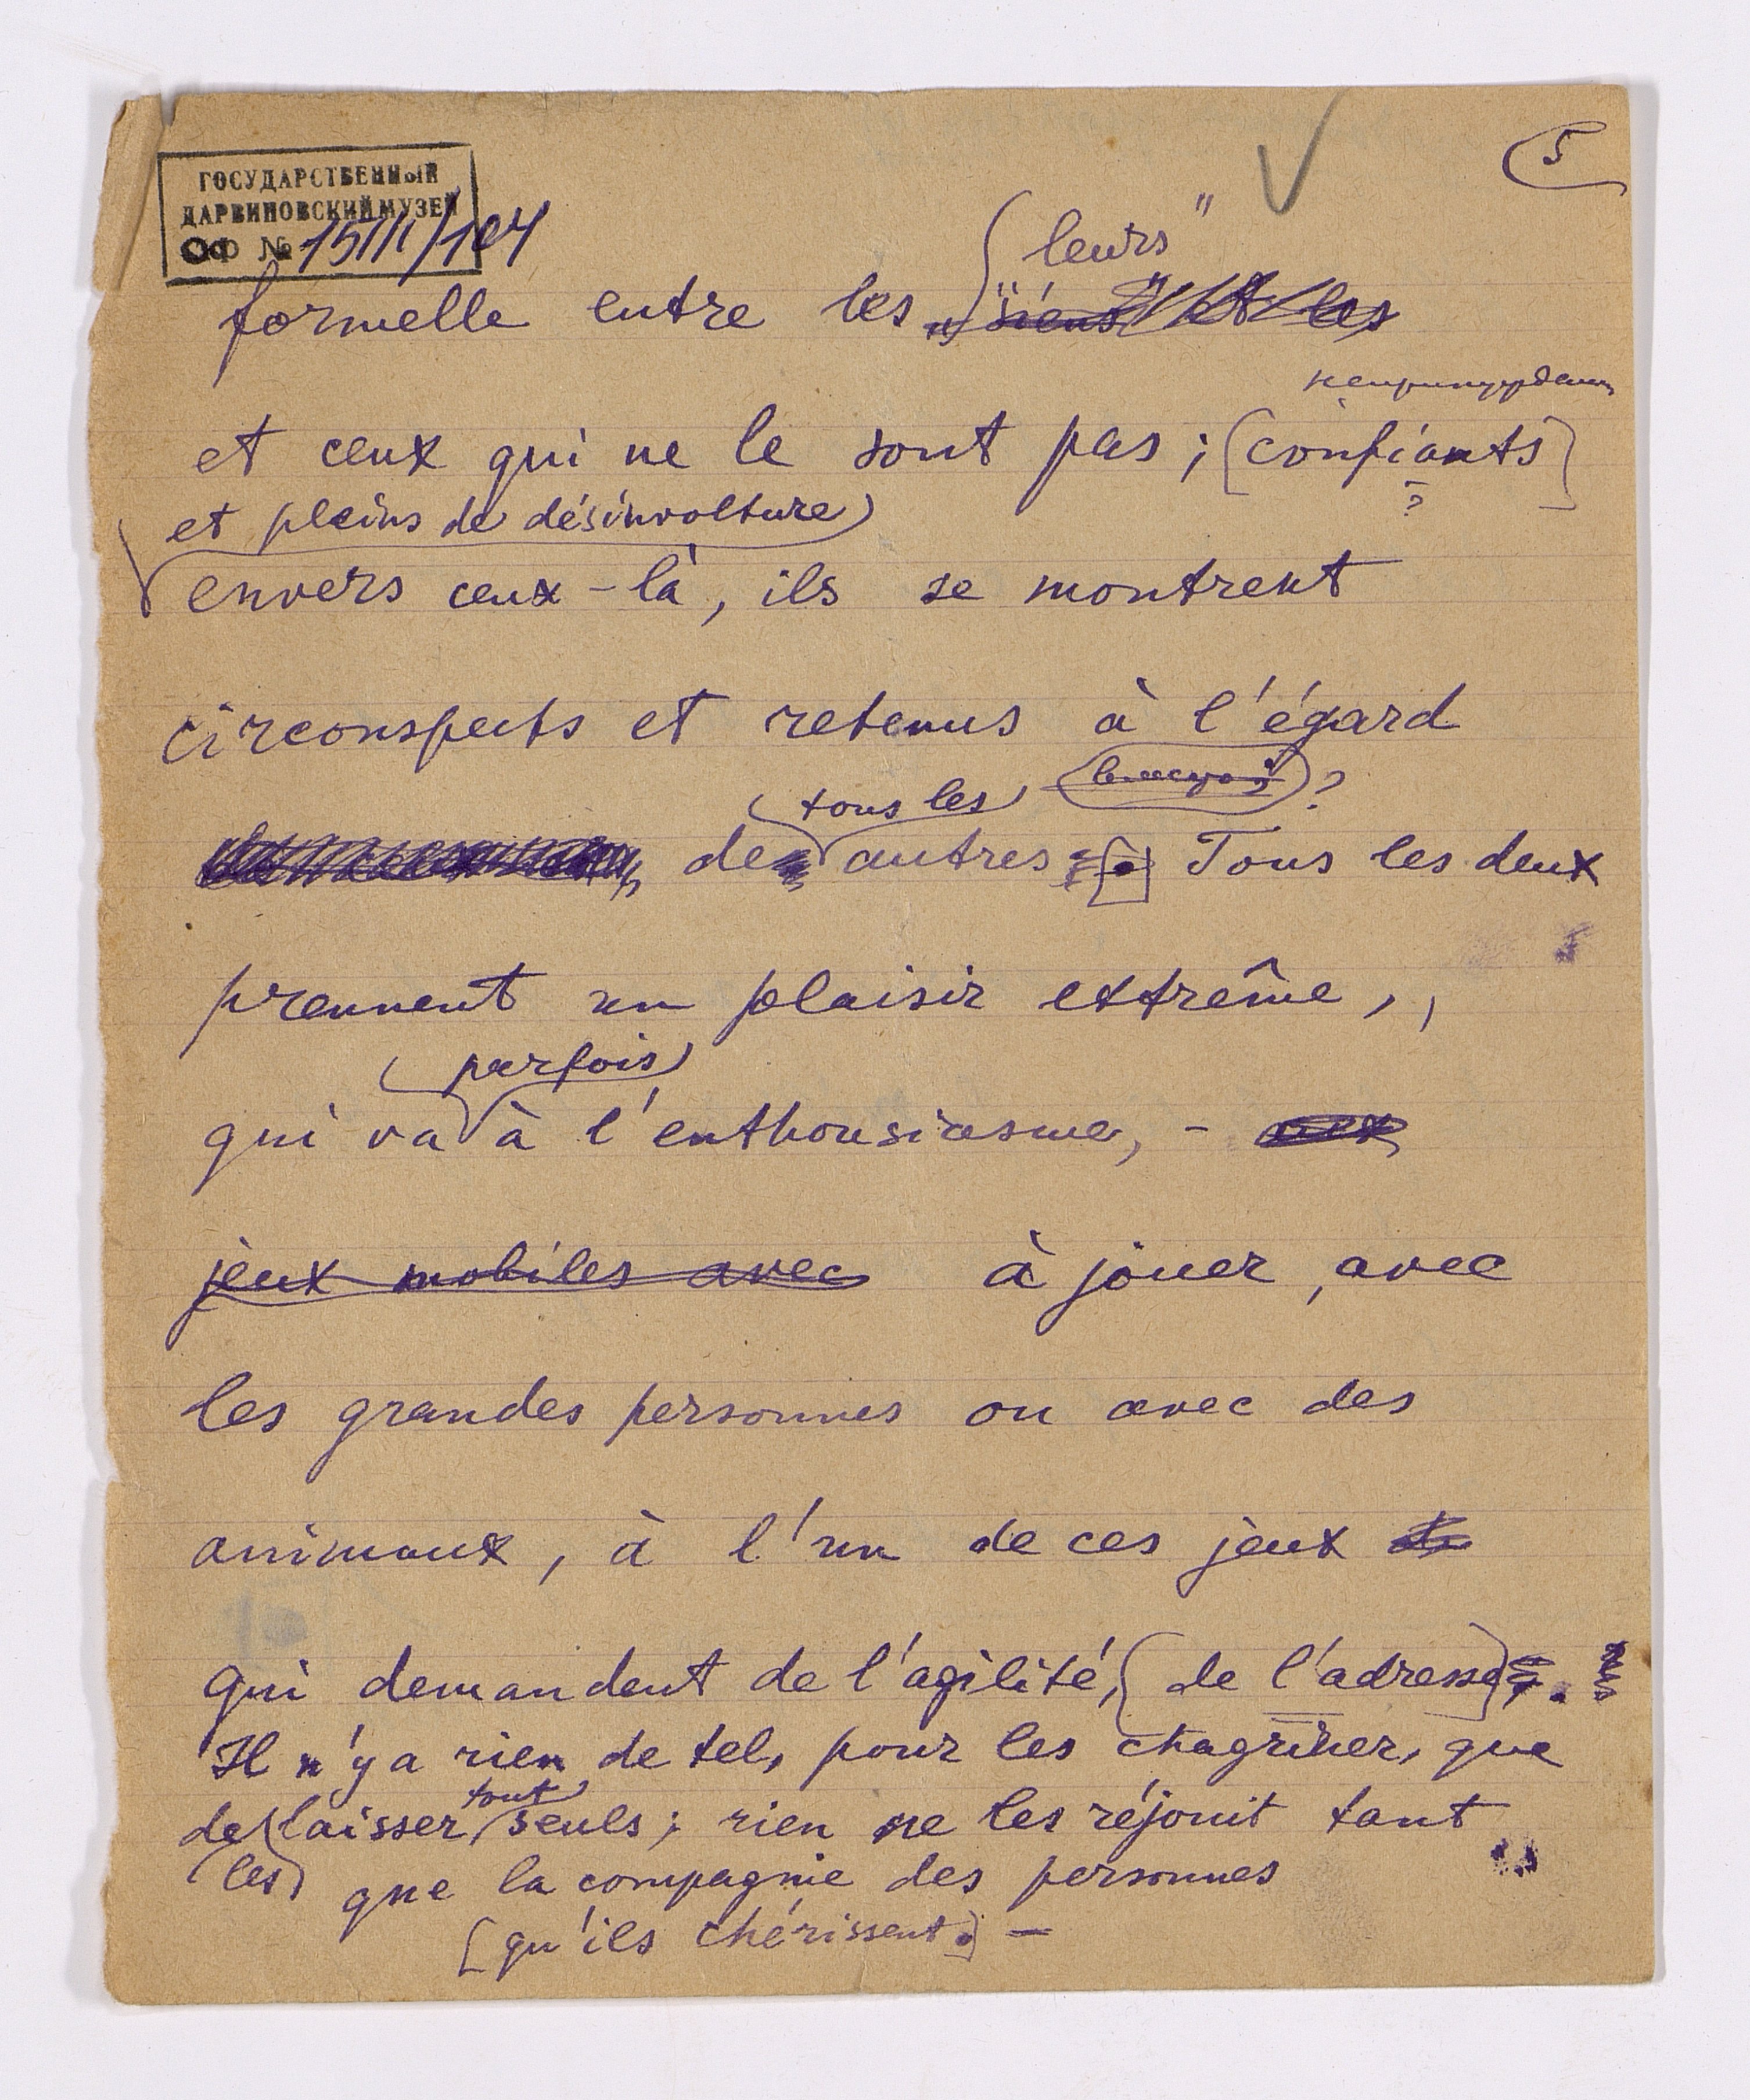 5
ГОСУДАРСТВЕННЫЙ
ДАРВИНОВСКИЙ МУЗЕЙ
ОФ №
leurs"
formelle entre les "siens" et les
et ceux qui ne le sont pas; (confiants)
?
et pleins de désinvolture
envers ceux-là, ils se montrent
circonspects et retenus à l'égard
tous les ?
de autres. Tous les deux
prennent un plaisir extrême,,
parfois
qui va à l'enthousiasme, -
jeux mobiles avec à jouer, avec
les grandes personnes ou avec des
animaux, à l'un de ces jeux
qui demandent de l'agilité, (de l'adresse).
Il n'y a rien de tel, pour les chagriner, que
tout
de laisser, seuls; rien ne les réjouit tant
les que la compagnie des personnes
[qu'ils chérissent.] —